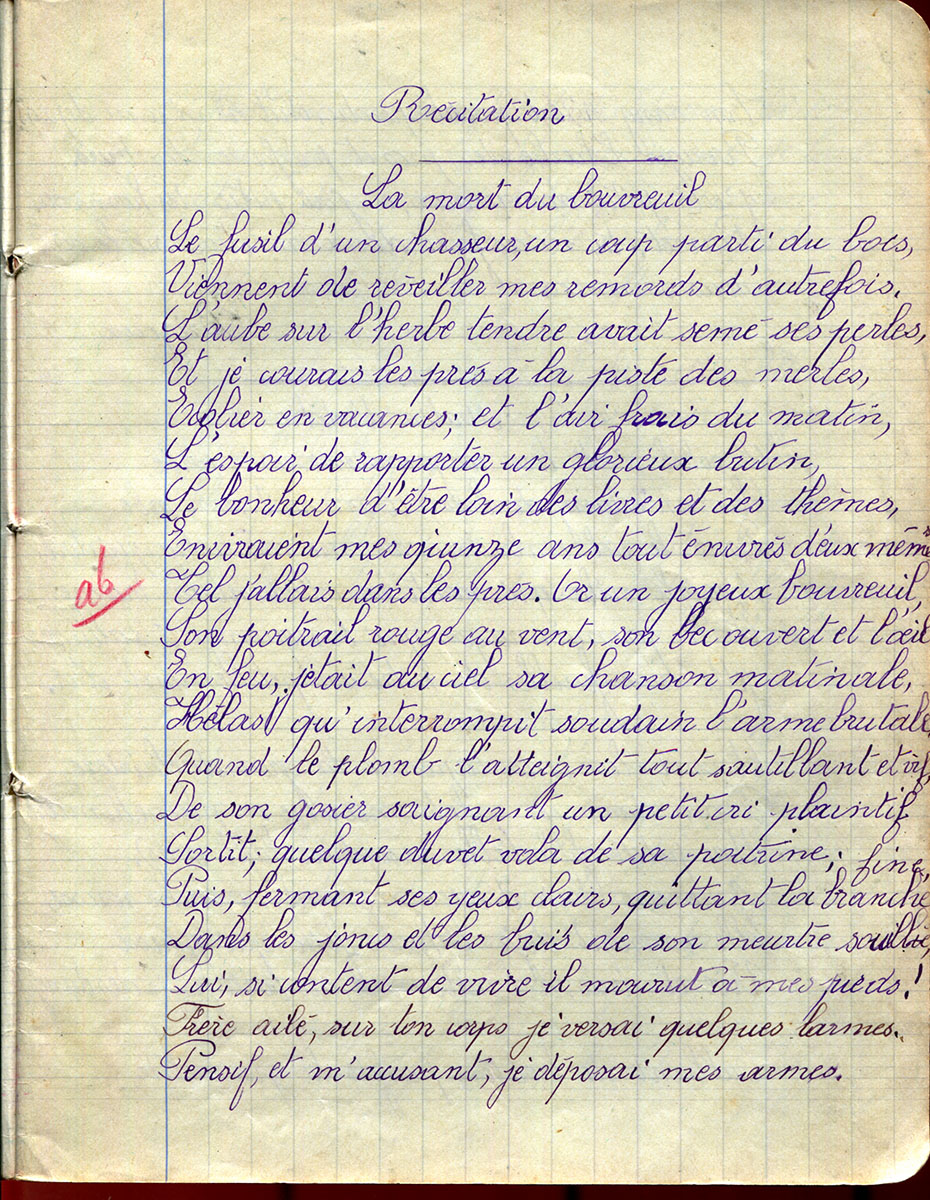 Récitation
La mort du bouvreuil
Le fusil d'un chasseur, un coup parti du bois,
Viennent de réveiller mes remords d'autrefois.
L'aube sur l'herbe tendre avait semé ses perles,
Et je courais les prés à la piste des merles,
Ecolier en vacances; et l'air frais du matin,
L'espoir de rapporter un glorieux butin,
Le bonheur d'être loin des livres et des thèmes,
Enivraient mes quinze ans tout enivrés d'eux même
Tel j'allais dans les prés. Or un joyeux bouvreuil,
Son poitrail rouge au vent, son bec ouvert et l'œil
ab
En feu, jetait au ciel sa chanson matinale,
Hélas! qu'interrompit soudain l'arme brutale,
Quand le plomb l'atteignit tout sautillant et vif,
De son gosier saignant un petit cri plaintif
Sortit; quelque duvet vola de sa poitrine;
Puis, fermant ses yeux clairs, quittant la branche fine,
Dans les joncs et les buis de son meurtre souillés,
Lui, si content de vivre il mourut à mes pieds!
Frère ailé, sur ton corps je versai quelques larmes.
Pensif, et m'accusant, je déposai mes armes.